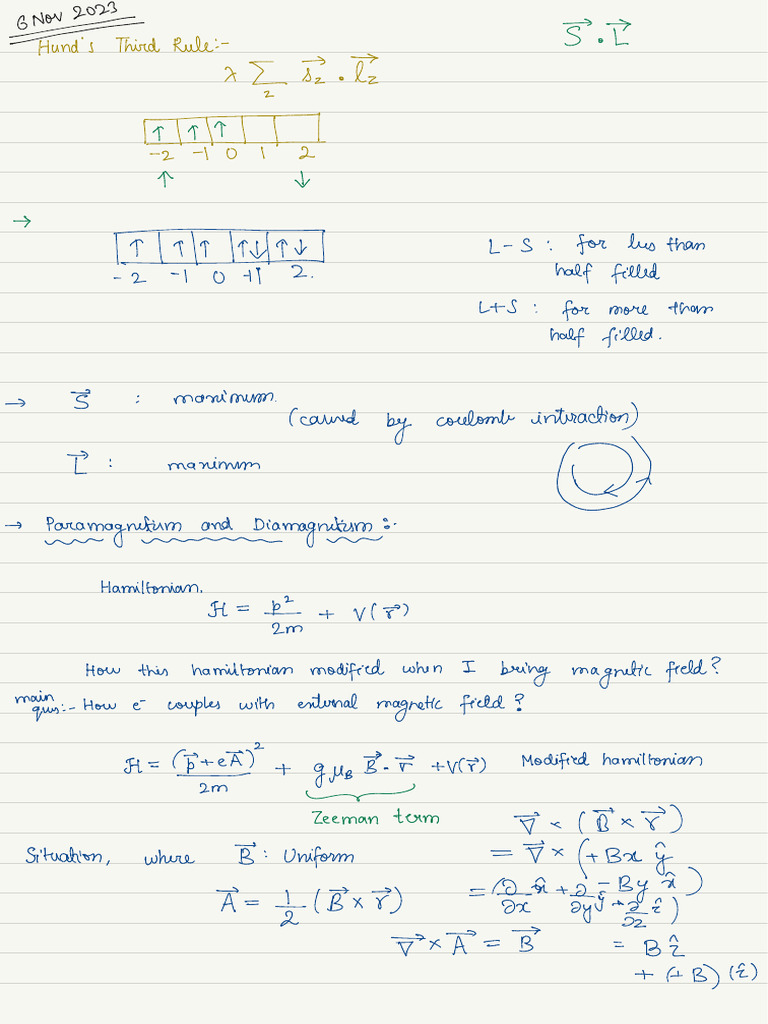 6 Nov 2023
Hund's Third Rule:-
S⃗ . L⃗
λ Σ_2 s⃗_2 . l⃗_2
↑ ↑ ↑
-2 -1 0 1 2
↑ ↓
→
↑ ↑ ↑ ↑↓ ↑↓
-2 -1 0 +1 2.
L-S : for less than
half filled
L+S : for more than
half filled.
→ S⃗ : maximum.
(caused by coulomb interaction)
L⃗ : maximum
→ Paramagnetism and Diamagnetism :-
Hamiltonian.
H = p²/2m + V(r⃗)
How this hamiltonian modified when I bring magnetic field?
main
ques:- How e⁻ couples with external magnetic field?
H = (p⃗+eA⃗)²/2m + gμ_B B⃗.σ⃗ + V(r⃗) Modified hamiltonian
Zeeman term
Situation, where B⃗ : Uniform
A⃗ = 1/2 (B⃗ × r⃗)
∇⃗ × A⃗ = B⃗
∇⃗ × (B⃗ × r⃗)
= ∇⃗ × (+Bx ŷ
- By x̂)
= (∂/∂x x̂ + ∂/∂y ŷ + ∂/∂z ẑ)
= B ẑ
+ (+B) (ẑ)